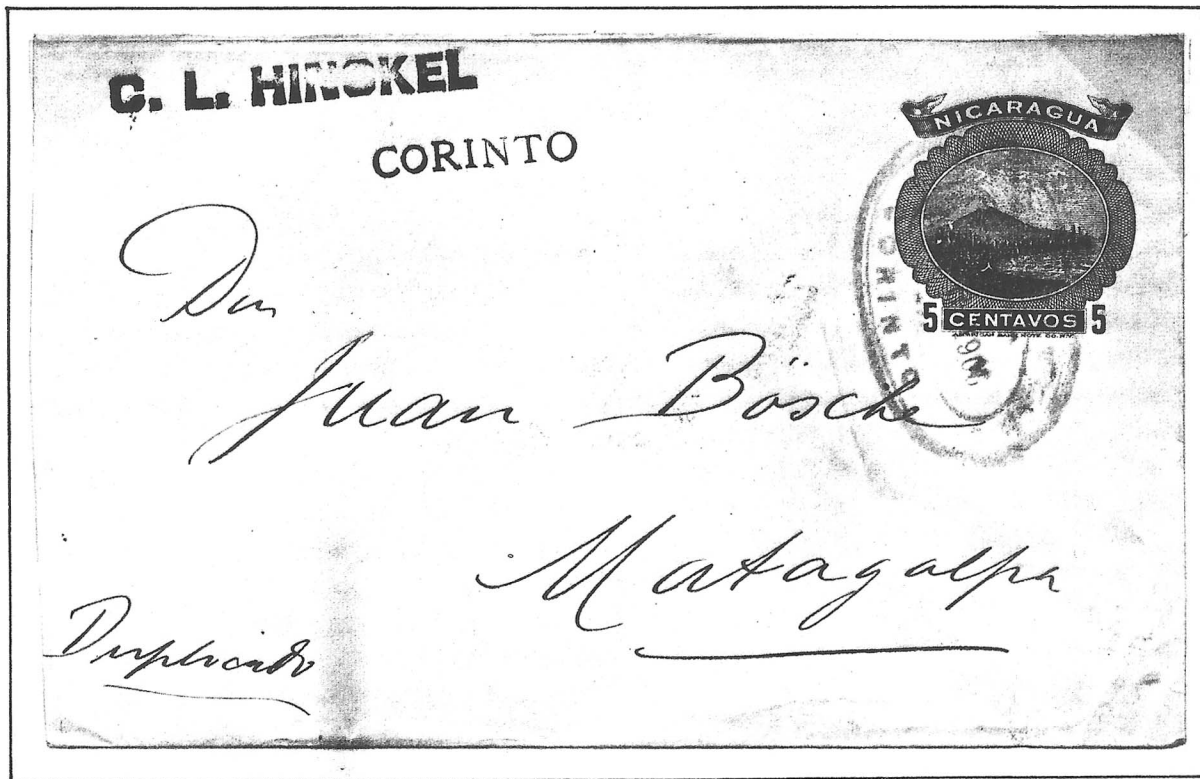 C. L. HINCKEL
CORINTO
NICARAGUA
5 CENTAVOS 5
CORINTO
Don
Juan Bösche
Matagalpa
Duplicado